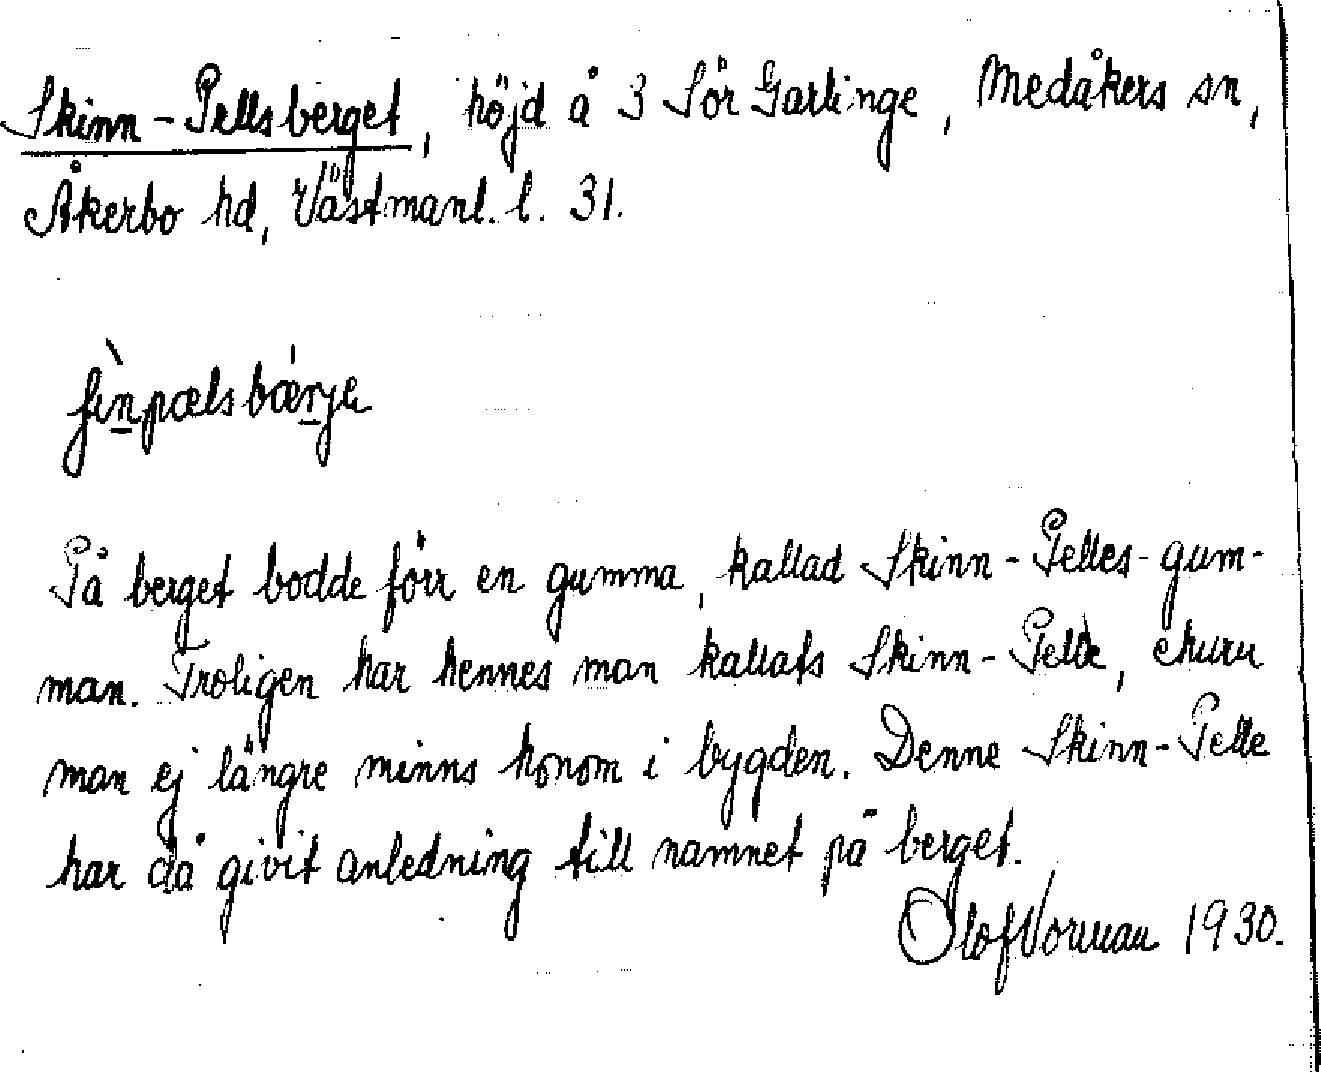 Skinn-Pellsberget, höjd å 3 Sör Gartinge, Medåkers sn,
Åkerbo hd, Västmanl. l. 31.
ʃinpælsbærje
På berget bodde förr en gumma, kallad Skinn-Pelles-gum-
man. Troligen har hennes man kallats Skinn-Pelle, ehuru
man ej längre minns honom i bygden. Denne Skinn-Pelle
har då givit anledning till namnet på berget.
Olof Vorman 1930.